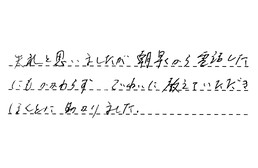 失礼と思いましたが 朝早くから電話した
にもかかわらず ていねいに教えていただき
ほんとに助かりました.